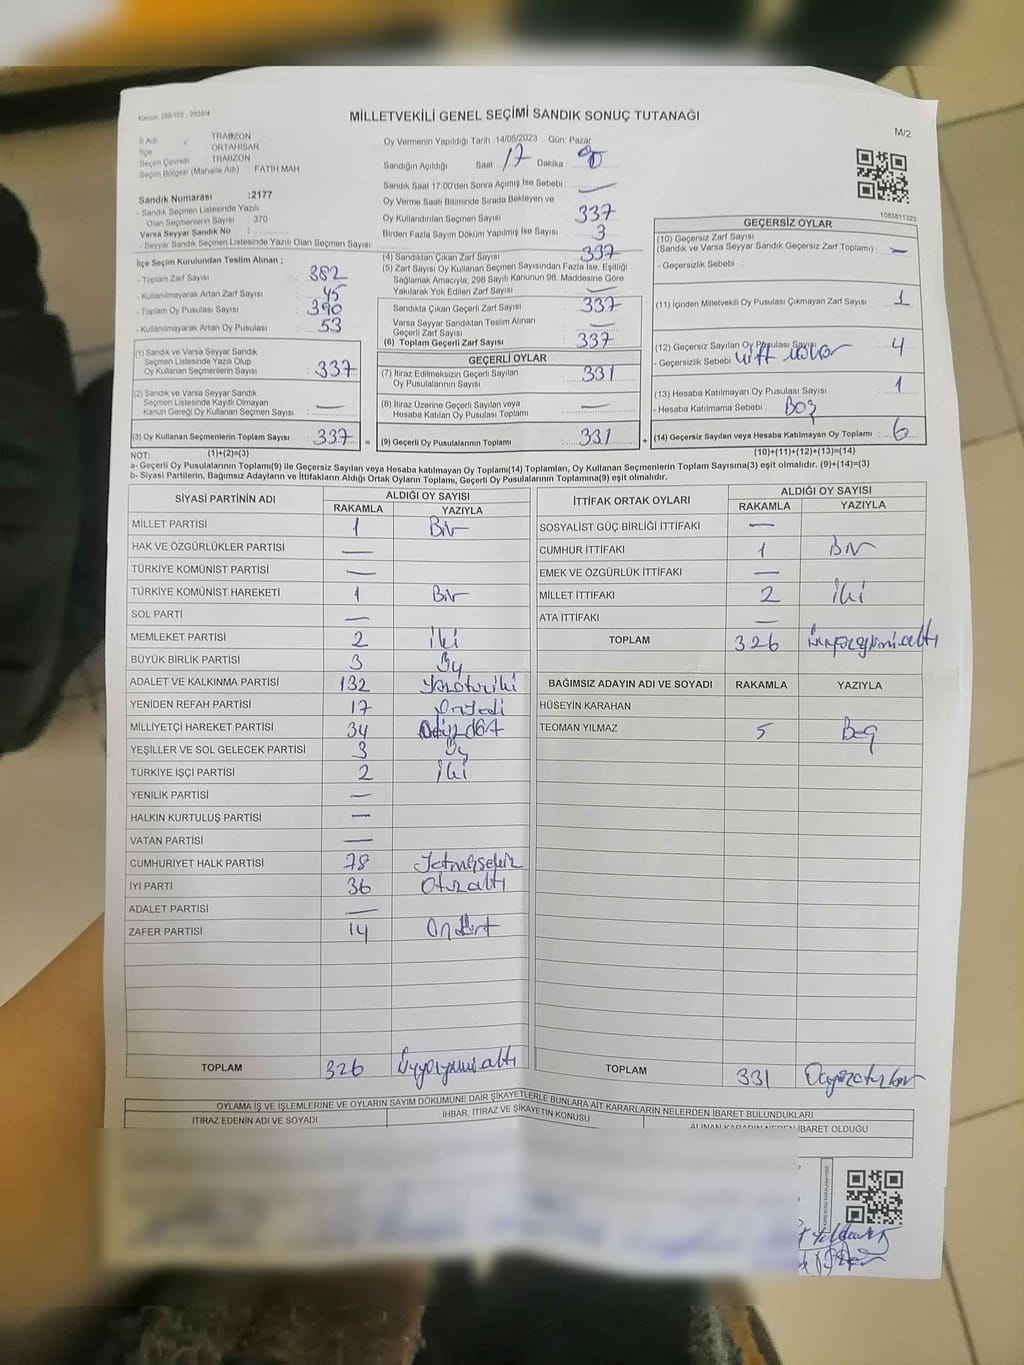 Kanun: 298/105 - 2839/4
MİLLETVEKİLİ GENEL SEÇİMİ SANDIK SONUÇ TUTANAĞI
M/2
İl Adı : TRABZON
İlçe : ORTAHİSAR
Seçim Çevresi : TRABZON
Seçim Bölgesi (Mahalle Adı) : FATİH MAH
Sandık Numarası :2177
- Sandık Seçmen Listesinde Yazılı
Olan Seçmenlerin Sayısı : 370
Varsa Seyyar Sandık No :
- Seyyar Sandık Seçmen Listesinde Yazılı Olan Seçmen Sayısı:
Oy Vermenin Yapıldığı Tarih :14/05/2023 Gün: Pazar
Sandığın Açıldığı Saat : 17 Dakika :
Sandık Saat 17:00'den Sonra Açımış İse Sebebi : —
Oy Verme Saati Bitiminde Sırada Bekleyen ve
Oy Kullandırılan Seçmen Sayısı : 337
Birden Fazla Sayım Döküm Yapılmış İse Sayısı : 3
1083811323
İlçe Seçim Kurulundan Teslim Alınan ;
- Toplam Zarf Sayısı : 382
- Kullanılmayarak Artan Zarf Sayısı : 45
- Toplam Oy Pusulası Sayısı : 390
- Kullanılmayarak Artan Oy Pusulası : 53
(1) Sandık ve Varsa Seyyar Sandık
Seçmen Listesinde Yazılı Olup
Oy Kullanan Seçmenlerin Sayısı : 337
(2) Sandık ve Varsa Seyyar Sandık
Seçmen Listesinde Kayıtlı Olmayan
Kanun Gereği Oy Kullanan Seçmen Sayısı : —
(3) Oy Kullanan Seçmenlerin Toplam Sayısı : 337 =
(1)+(2)=(3)
(4) Sandıktan Çıkan Zarf Sayısı : 337
(5) Zarf Sayısı Oy Kullanan Seçmen Sayısından Fazla İse, Eşitliği
Sağlamak Amacıyla, 298 Sayılı Kanunun 98. Maddesine Göre
Yakılarak Yok Edilen Zarf Sayısı : —
Sandıkta Çıkan Geçerli Zarf Sayısı : 337
Varsa Seyyar Sandıktan Teslim Alınan
Geçerli Zarf Sayısı : —
(6) Toplam Geçerli Zarf Sayısı : 337
GEÇERLİ OYLAR
(7) İtiraz Edilmeksizin Geçerli Sayılan
Oy Pusulalarının Sayısı : 331
(8) İtiraz Üzerine Geçerli Sayılan veya
Hesaba Katılan Oy Pusulası Toplamı : —
(9) Geçerli Oy Pusulalarının Toplamı : 331 +
GEÇERSİZ OYLAR
(10) Geçersiz Zarf Sayısı
(Sandık ve Varsa Seyyar Sandık Geçersiz Zarf Toplamı) : —
- Geçersizlik Sebebi :
(11) İçinden Milletvekili Oy Pusulası Çıkmayan Zarf Sayısı : 1
(12) Geçersiz Sayılan Oy Pusulası Sayısı : 4
- Geçersizlik Sebebi
(13) Hesaba Katılmayan Oy Pusulası Sayısı : 1
- Hesaba Katılmama Sebebi : Boş
(14) Geçersiz Sayılan veya Hesaba Katılmayan Oy Toplamı : 6
(10)+(11)+(12)+(13)=(14)
NOT:
a- Geçerli Oy Pusulalarının Toplamı(9) ile Geçersiz Sayılan veya Hesaba katılmayan Oy Toplamı(14) Toplamları, Oy Kullanan Seçmenlerin Toplam Sayısına(3) eşit olmalıdır. (9)+(14)=(3)
b- Siyasi Partilerin, Bağımsız Adayların ve İttifakların Aldığı Ortak Oyların Toplamı, Geçerli Oy Pusulalarının Toplamına(9) eşit olmalıdır.
SİYASİ PARTİNİN ADI ALDIĞI OY SAYISI
RAKAMLA YAZIYLA
MİLLET PARTİSİ 1 Bir
HAK VE ÖZGÜRLÜKLER PARTİSİ —
TÜRKİYE KOMÜNİST PARTİSİ —
TÜRKİYE KOMÜNİST HAREKETİ 1 Bir
SOL PARTİ —
MEMLEKET PARTİSİ 2 iki
BÜYÜK BİRLİK PARTİSİ 3 Üç
ADALET VE KALKINMA PARTİSİ 132 Yüzotuziki
YENİDEN REFAH PARTİSİ 17 Onyedi
MİLLİYETÇİ HAREKET PARTİSİ 34 Otuzdört
YEŞİLLER VE SOL GELECEK PARTİSİ 3 Üç
TÜRKİYE İŞÇİ PARTİSİ 2 iki
YENİLİK PARTİSİ —
HALKIN KURTULUŞ PARTİSİ —
VATAN PARTİSİ —
CUMHURİYET HALK PARTİSİ 78 Yetmişsekiz
İYİ PARTİ 36 Otuzaltı
ADALET PARTİSİ —
ZAFER PARTİSİ 14 Ondört
TOPLAM 326 Üçyüzyirmialtı
İTTİFAK ORTAK OYLARI ALDIĞI OY SAYISI
RAKAMLA YAZIYLA
SOSYALİST GÜÇ BİRLİĞİ İTTİFAKI —
CUMHUR İTTİFAKI 1 Bir
EMEK VE ÖZGÜRLÜK İTTİFAKI —
MİLLET İTTİFAKI 2 iki
ATA İTTİFAKI —
TOPLAM 326 Üçyüzyirmialtı
BAĞIMSIZ ADAYIN ADI VE SOYADI RAKAMLA YAZIYLA
HÜSEYİN KARAHAN
TEOMAN YILMAZ 5 Beş
TOPLAM 331 Üçyüzotuzbir
OYLAMA İŞ VE İŞLEMLERİNE VE OYLARIN SAYIM DÖKÜMÜNE DAİR ŞİKAYETLERLE BUNLARA AİT KARARLARIN NELERDEN İBARET BULUNDUKLARI
İTİRAZ EDENİN ADI VE SOYADI İHBAR, İTİRAZ VE ŞİKAYETİN KONUSU ALINAN KARARIN NEDEN İBARET OLDUĞU